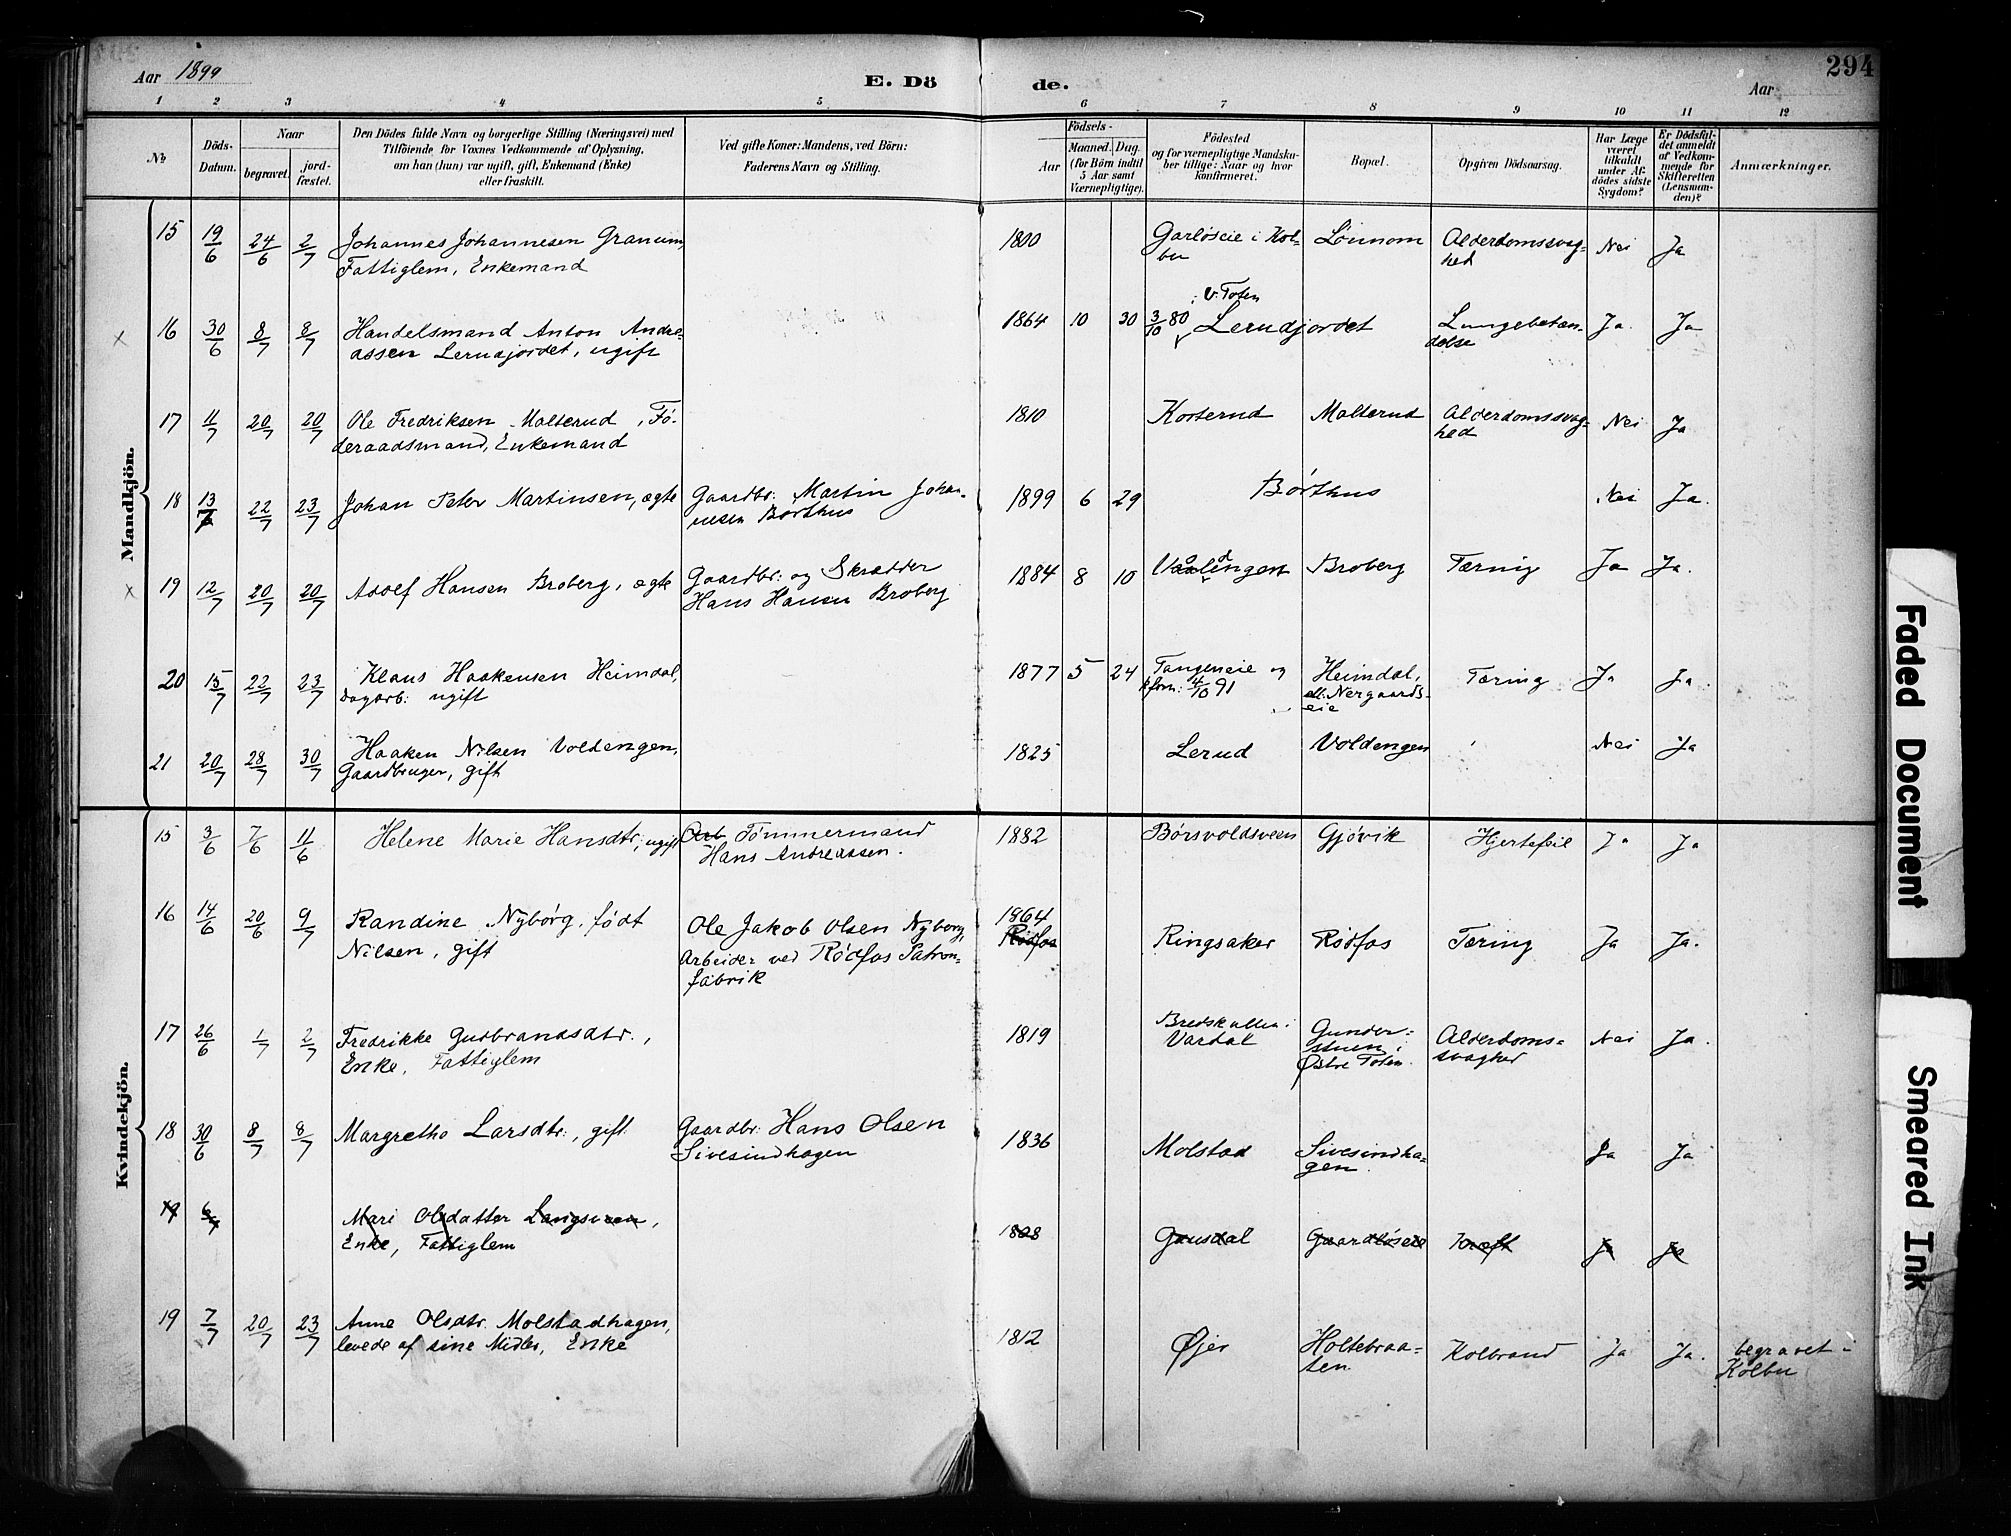 Aar 1899
E. Dö de.
Aar
294
1 2 3 4 5 6 7 8 9 10 11 12
No
Döds-
Datum.
Naar
begravet.
jord-
fæstet.
Den Dödes fulde Navn og borgerlige Stilling (Næringsvei) med
Tilföiende for Voxnes Vedkommende af Oplysning,
om han (hun) var ugift, gift, Enkemand (Enke)
eller fraskilt.
Ved gifte Koner: Mandens, ved Börn:
Faderens Navn og Stilling.
Födsels-
Aar
Maaned. Dag.
(for Börn indtil
5 Aar samt
Værnepligtige).
Födested
og for værnepligtige Mandsku-
ber tillige: Naar og hvor
konfirmeret.
Bopæl.
Opgiven Dödsaarsag.
Har Læge
været
tilkaldt
under Af-
dödes sidste
Sygdom?
Er Dödsfal-
det anmeldt
af Vedkom-
mende for
Skifteretten
(Lensman-
den)?
Anmærkninger.
Mandkjön.
15 19/6 24/6 2/7 Johannes Johannesen Granum, 1800 Garløseie i Kol- Lönnom Alderdomssvag- Nei Ja
Fattiglem, Enkemand bu hed
V. Toten
x 16 30/6 8/7 8/7 Handelsmand Anton Andre- 1864 10 30 3/10 80 Lerudjordet Lungebetæn- Ja Ja
assen Lerudjordet, ugift delse
17 11/7 20/7 20/7 Ole Fredriksen Malterud, Fö- 1810 Kosterud Malterud Alderdomssvag- Nei Ja
deraadsmand, Enkemand hed
18 13/7 22/7 23/7 Johan Peter Martinsen, ægte Gaardbr: Martin Johan- 1899 6 29 Børthus Nei Ja.
nesen Børthus
x 19 12/7 20/7 20/7 Adolf Hansen Broberg, ægte Gaardbr: og Skrædder 1884 8 10 Broberg Tæring Ja Ja.
Hans Hansen Broberg
20 15/7 22/7 23/7 Klaus Haakensen Heimdal, 1877 5 24 Tangeneie og Heimdal, Tæring Ja Ja
Dagarb: ugift kfirm: 4/10 91 ell. Nergaards-
eie
21 20/7 28/7 30/7 Haaken Nilsen Voldengen, 1825 Lerud Voldengen Nei Ja
Gaardbruger, gift
Kvindekjön.
15 3/6 7/6 11/6 Helene Marie Hansdtr; ugift Arb Tømmermand 1882 Børsvoldsveen Gjøvik Hjertefeil Ja Ja
Hans Andreassen.
16 14/6 20/6 9/7 Randine Nyborg, født Ole Jakob Olsen Nyborg, 1864 Ringsaker Rødfos Tæring Ja Ja.
Nilsen, gift Arbeider ved Rødfos Patron- Rødfos
fabrik
17 26/6 1/7 2/7 Fredrikke Gudbrandsdtr., 1819 Bredskallen i Gunder- Alderdoms- Nei Ja.
Enke, Fattiglem Vardal stuen i svaghed
Østre Toten.
18 30/6 8/7 8/7 Margrethe Larsdtr., gift Gaardbr: Hans Olsen 1836 Molstad Sivesindha- Ja Ja
Sivesindhagen gen
19 Mari Olsdatter Langsveen, 1808 Gausdal Gaardløseie Kræft Ja Ja
Enke, Fattiglem
19 7/7 20/7 23/7 Anne Olsdtr. Molstadhagen, 1812 Øjer Holtebraa- Kolbrand Ja Ja. begravet i
levede af sine Midler, Enke ten Kolbu
Faded Document
Smeared Ink